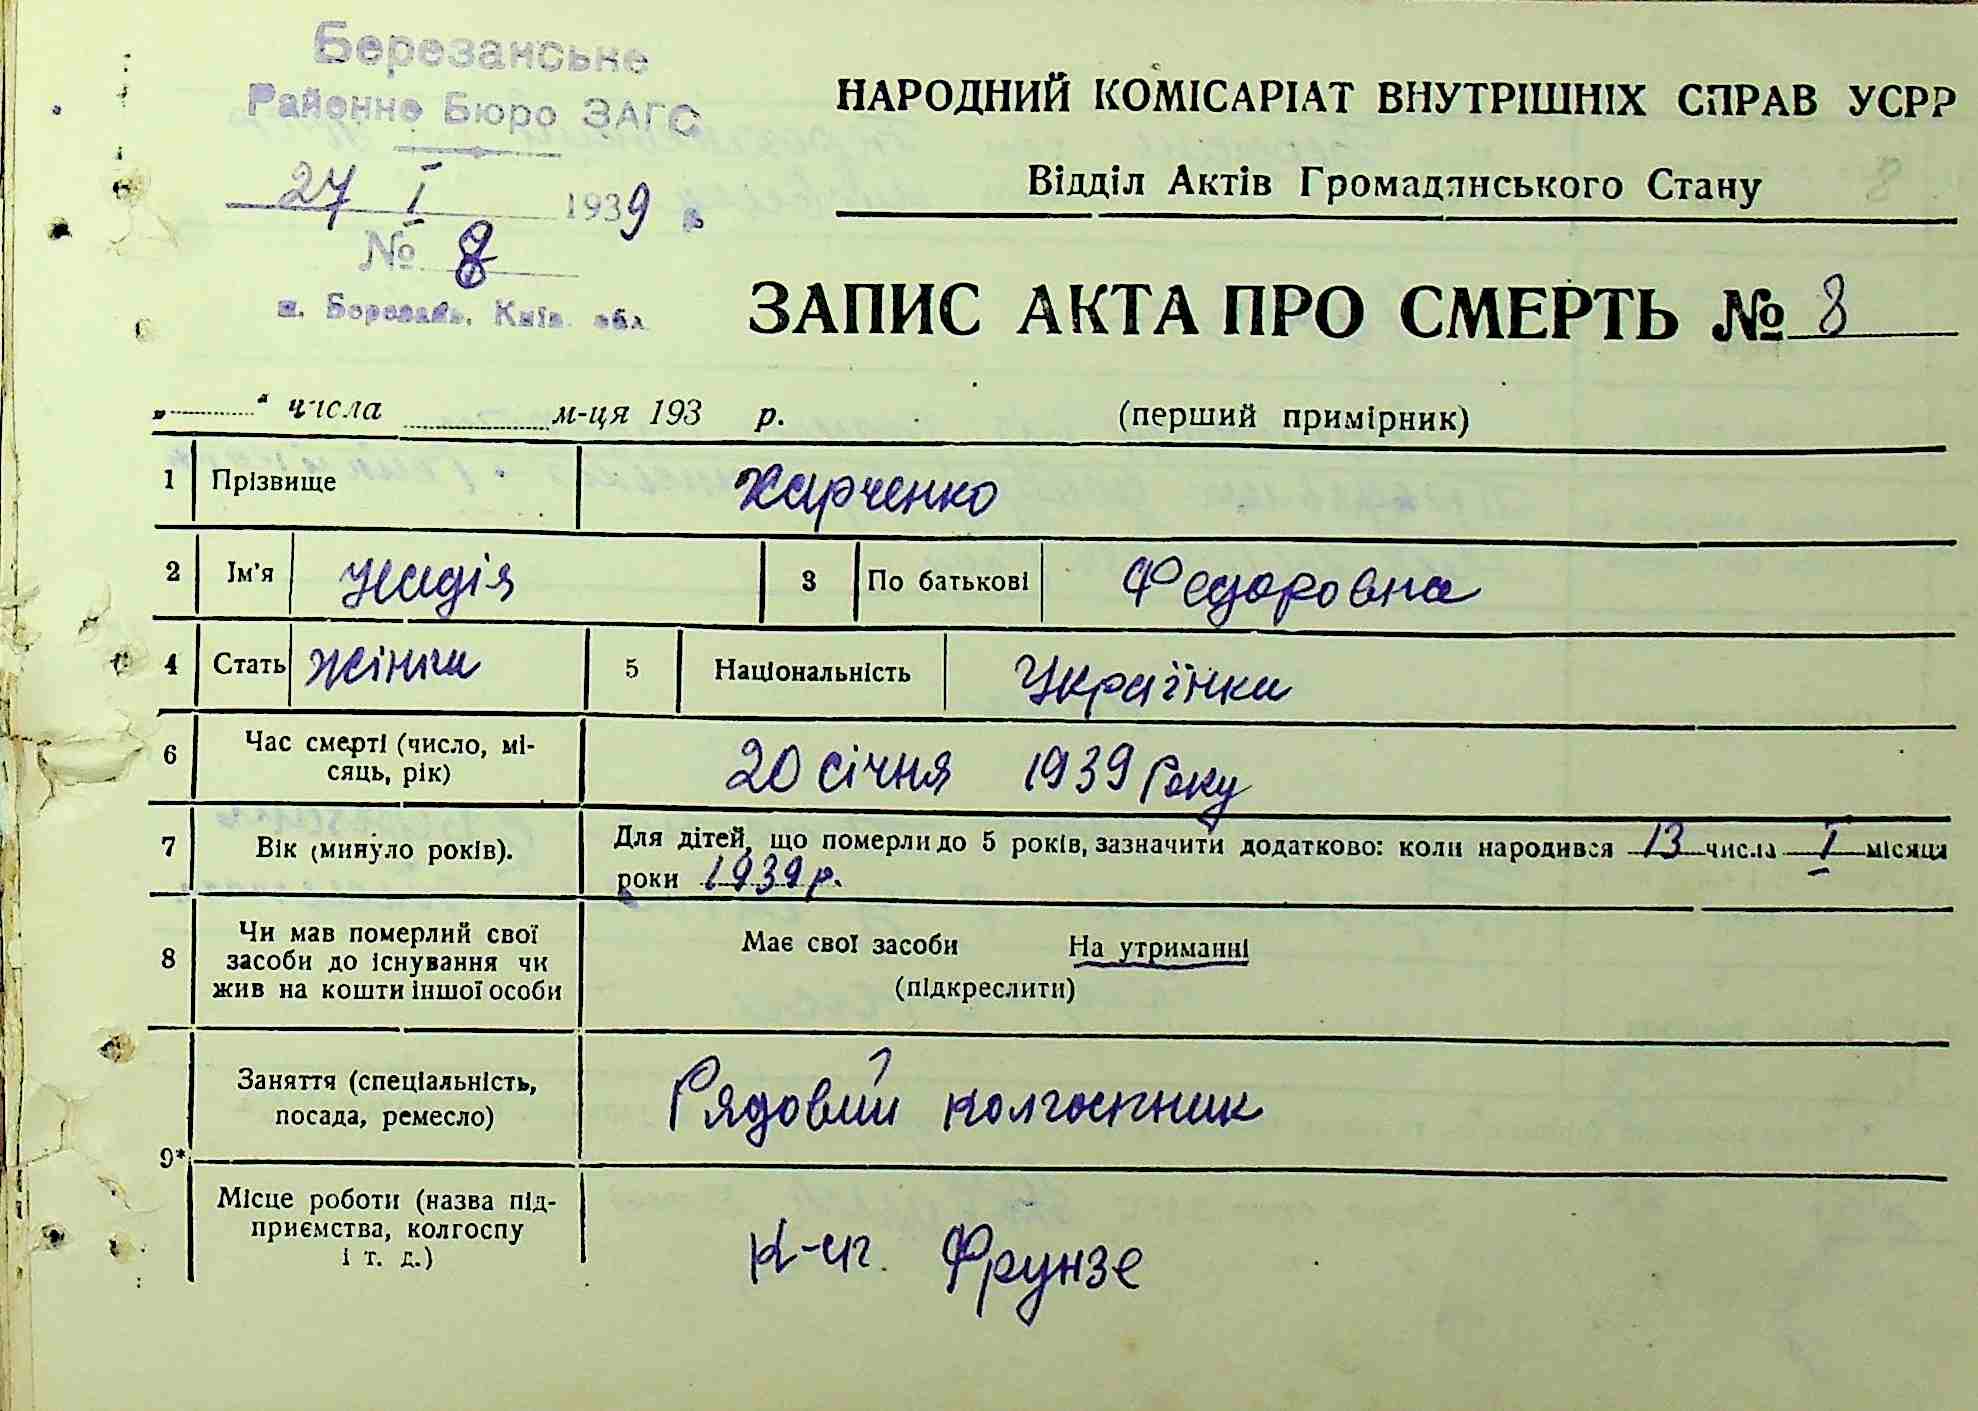 Березанське
Районне Бюро ЗАГС
27 I 1939 р.
№ 8
м. Березань, Київ. обл.
НАРОДНИЙ КОМІСАРІАТ ВНУТРІШНІХ СПРАВ УСРР
Відділ Актів Громадянського Стану
ЗАПИС АКТА ПРО СМЕРТЬ № 8
„ " числа м-ця 193 р. (перший примірник)
1 Прізвище Харченко
2 Ім'я Надія 3 По батькові Федоровна
4 Стать жінка 5 Національність Українка
6 Час смерті (число, мі-
сяць, рік) 20 січня 1939 року
7 Вік (минуло років). Для дітей, що померли до 5 років, зазначити додатково: коли народився 13 числа I місяця
роки 1939 р.
8 Чи мав померлий свої
засоби до існування чи
жив на кошти іншої особи
Має свої засоби На утриманні
(підкреслити)
9* Заняття (спеціальність,
посада, ремесло) Рядовий колгоспник
Місце роботи (назва під-
приємства, колгоспу
і т. д.) Фрунзе